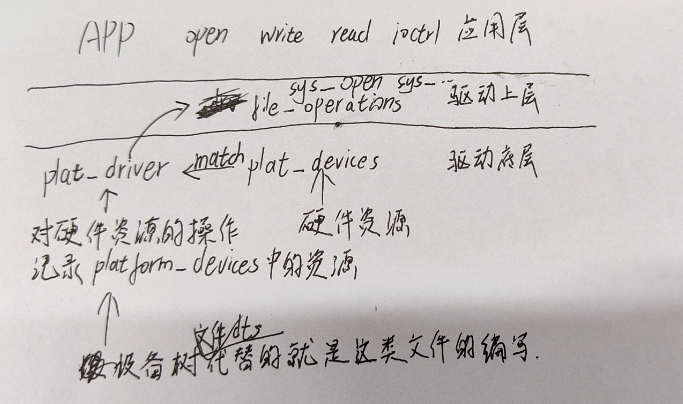 APP open write read ioctl 应用层
sys_open sys_...
file_operations 驱动上层
plat_driver match plat_devices 驱动底层
对硬件资源的操作 硬件资源
记录platform_devices中的资源
文件dts
设备树代替的就是这类文件的编写.